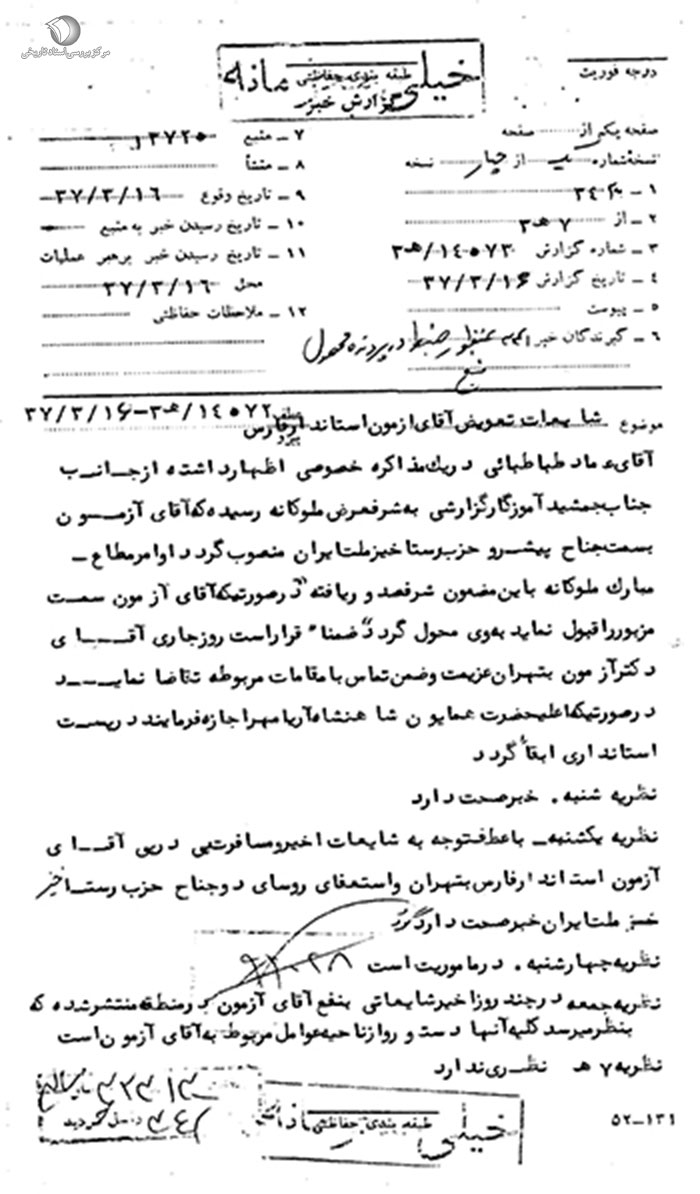 مرکز بررسی اسناد تاریخی
خیلی محرمانه
طبقه بندی حفاظتی
گزارش خبر
درجه فوریت
صفحه یکم از صفحه
نسخه شماره یک از چهار نسخه
۱ ـ به ۳۴۱
۲ ـ از ۷ هـ ۳
۳ ـ شماره گزارش ۱۴۵۷۳/هـ۳
۴ ـ تاریخ گزارش ۳۷/۳/۱۶
۵ ـ پیوست
۶ ـ گیرندگان خبر بمنظور ضبط در پرونده محصول
منبع
۷ ـ منبع ۱۳۷۲۵
۸ ـ منشأ
۹ ـ تاریخ وقوع ۳۷/۳/۱۶
۱۰ ـ تاریخ رسیدن خبر به منبع
۱۱ ـ تاریخ رسیدن خبر برهبر عملیات
محل ۳۷/۳/۱۶
۱۲ ـ ملاحظات حفاظتی
موضوع شایعات تعویض آقای ازمون استاندار فارس
عطف ۱۴۵۷۲/هـ۳-۳۷/۳/۱۶
پیرو
آقای عماد طباطبائی در یک مذاکره خصوصی اظهار داشته از جانب
جناب جمشید آموزگار گزارشی به شرفعرض ملوکانه رسیده که آقای آزمون
بسمت جناح پیشرو حزب رستاخیز ملت ایران منصوب گردد اوامر مطاع ـ
مبارك ملوکانه باین مضمون شرفصدور یافته "در صورتیکه آقای آزمون سمت
مزبور را قبول نماید بوی محول گردد" ضمنا" قرار است روز جاری آقای
دکتر آزمون بتهران عزیمت و ضمن تماس با مقامات مربوطه تقاضا نماید
در صورتیکه اعلیحضرت همایون شاهنشاه آریامهر اجازه فرمایند در پست
استانداری ابقاء گردد
نظریه شنبه . خبر صحت دارد
نظریه یکشنبه ـ با عطف توجه به شایعات اخیر و مسافرت پی در پی آقای
آزمون استاندار فارس بتهران و استعفای روسای دو جناح حزب رستاخیز
خیز ملت ایران خبر صحت دارد
نظریه چهارشنبه . در ماموریت است
نظریه جمعه در چند روز اخیر شایعاتی بنفع آقای آزمون در منطقه منتشر شده که
بنظر میرسد کلیه آنها درست و رواز ناحیه عوامل مربوط به آقای آزمون است
نظریه ۷ هـ نظری ندارد
گردید
خیلی محرمانه
طبقه بندی حفاظتی
۵۲-۱۳۱